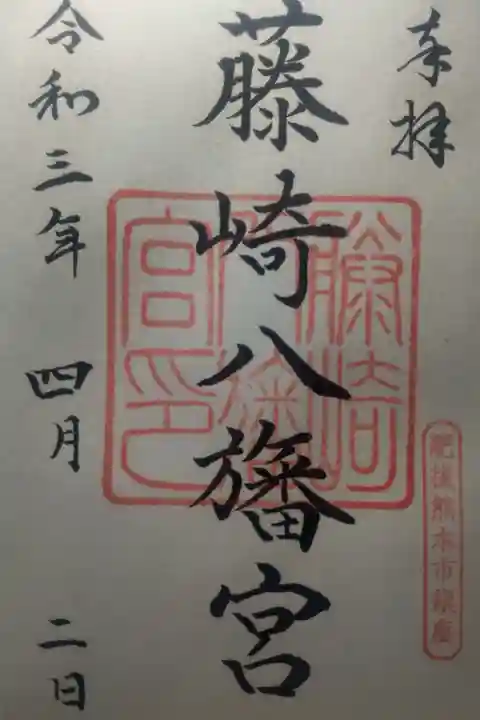 奉拝
藤崎八旛宮
令和三年四月二日
藤崎八旛宮印
肥後熊本市鎮座